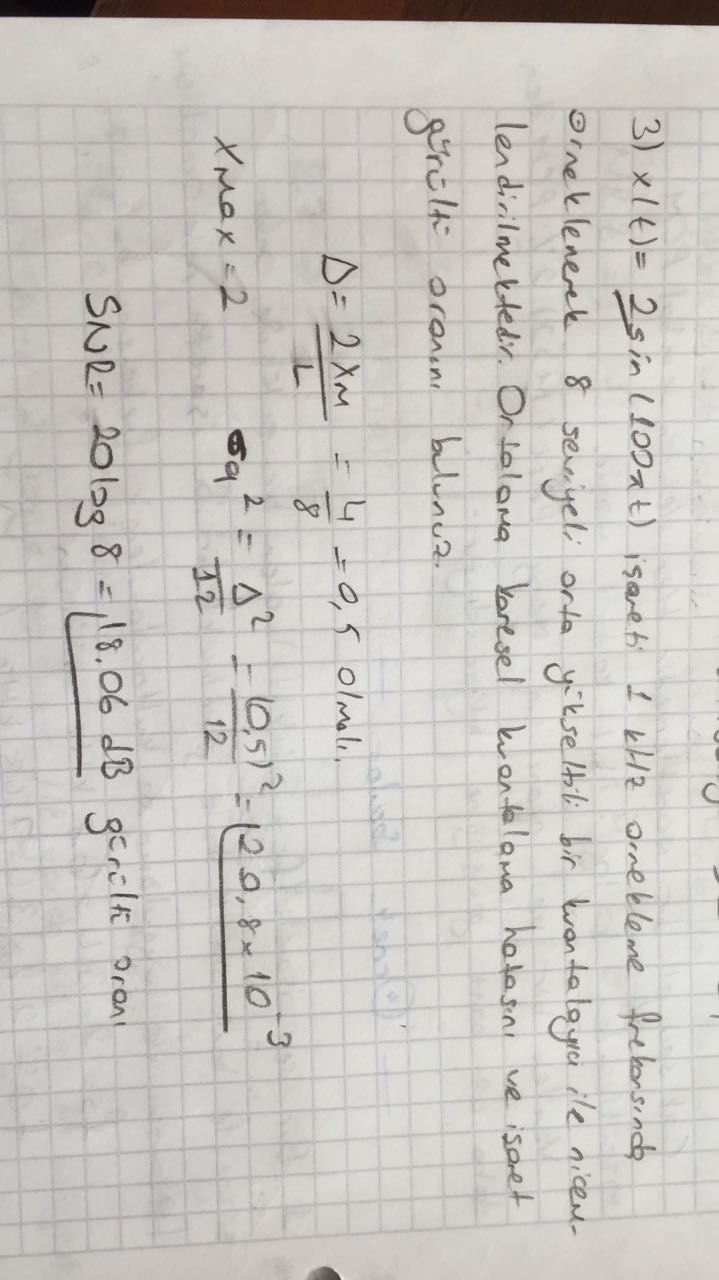 3) x(t) = 2sin(100πt) işareti 1 kHz örnekleme frekansında
örneklenerek 8 seviyeli orta yükseltili bir kuantalayıcı ile nicem-
lendirilmektedir. Ortalama karesel kuantalama hatasını ve işaret
gürültü oranını bulunuz.
Δ = 2XM/L = 4/8 = 0,5 olmalı.
XMax = 2 σq² = Δ²/12 = (0,5)²/12 = 20,8x10⁻³
SNR = 20log8 = 18.06 dB gürültü oranı